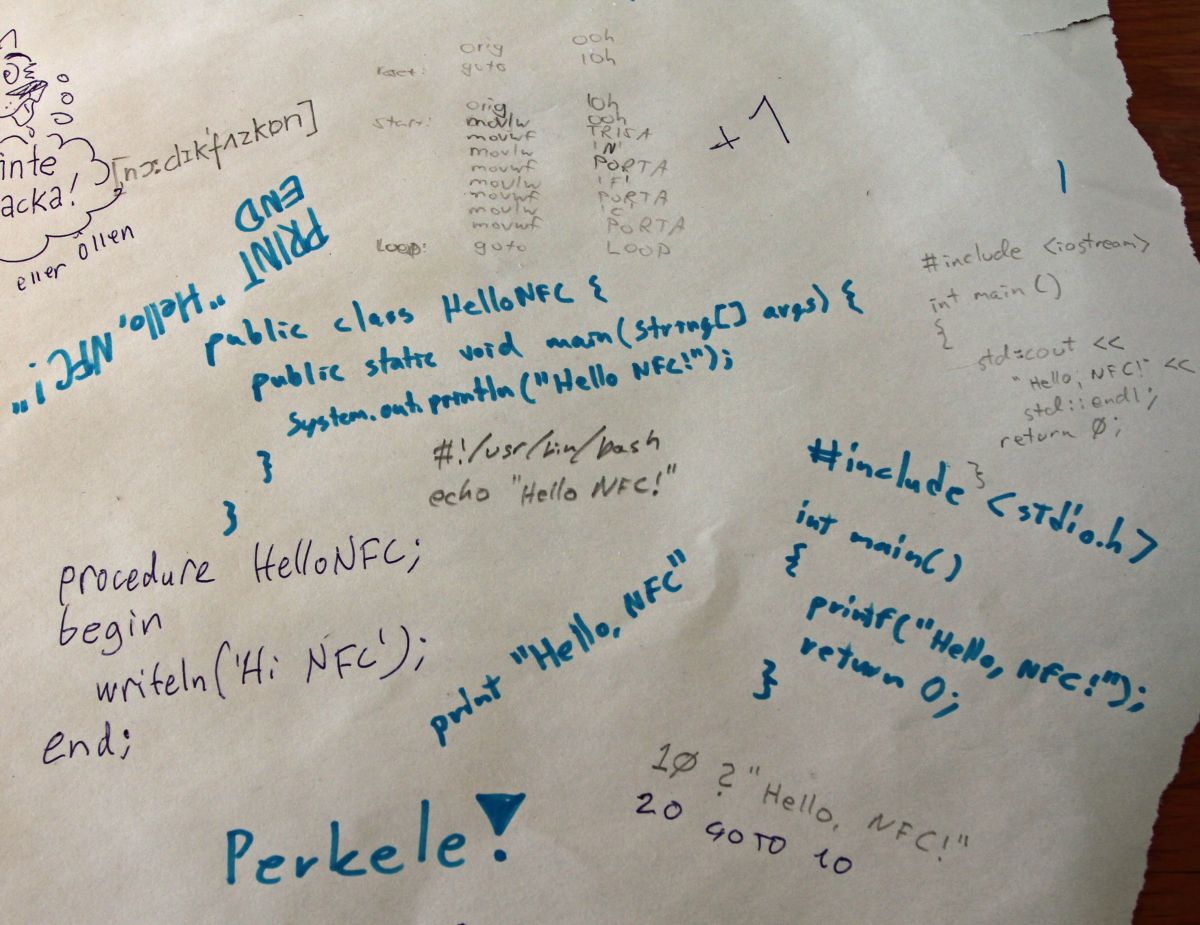 inte
acka!
eller Öllen
[nɔːdɪk'fʌzkɒn]
orig 00h
goto 10h
orig 10h
start: movlw 00h
movwf TRISA
movlw 'N'
movwf PORTA
movlw 'F'
movwf PORTA
movlw 'C'
movwf PORTA
LOOP: goto LOOP
+1
PRINT "Hello, NFC!"
END
public class HelloNFC {
public static void main(String[] args) {
System.out.println("Hello NFC!");
}
}
#!/usr/bin/bash
echo "Hello NFC!"
#include <iostream>
int main()
{
std::cout <<
"Hello, NFC!" <<
std::endl;
return 0;
}
#include <stdio.h>
int main()
{
printf("Hello, NFC!");
return 0;
}
procedure HelloNFC;
begin
writeln('Hi NFC');
end;
print "Hello, NFC"
10 ? "Hello, NFC!"
20 GOTO 10
Perkele!